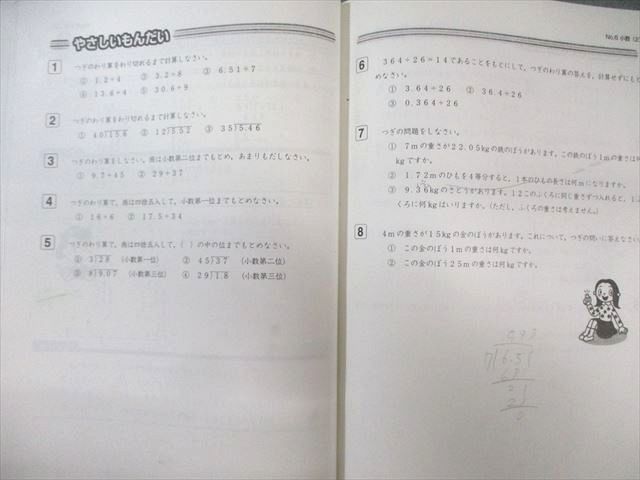 やさしいもんだい
1 つぎのわり算をわり切れるまで計算しなさい。
① 1.2÷4 ② 3.2÷8 ③ 6.51÷7
④ 13.6÷4 ⑤ 30.6÷9
2 つぎのわり算をわり切れるまで計算しなさい。
① 40)15.6 ② 12)5.52 ③ 35)5.46
3 つぎのわり算をしなさい。商は小数第二位までもとめ、あまりもだしなさい。
① 9.7÷45 ② 29÷37
4 つぎのわり算で、商は四捨五入して、小数第一位までもとめなさい。
① 16÷6 ② 17.5÷34
5 つぎのわり算で、商は四捨五入して、( )の中の位までもとめなさい。
① 3)28 (小数第一位) ② 45)37 (小数第二位)
③ 8)9.07 (小数第三位) ④ 29)1.8 (小数第三位)
No.6 小数(2
6 364÷26=14であることをもとにして、つぎのわり算の答えを、計算せずにも
めなさい。
① 3.64÷26 ② 36.4÷26
③ 0.364÷26
7 つぎの問題をしなさい。
① 7mの重さが22.05kgの鉄のぼうがあります。この鉄のぼう1mの重さは
kgですか。
② 1.72mのひもを4等分すると、1本のひもの長さは何mになりますか。
③ 9.36kgのさとうがあります。12このふくろに同じ重さずつ入れると、1こ
くろに何kgはいりますか。(ただし、ふくろの重さは考えません。)
8 4mの重さが15kgの金のぼうがあります。これについて、つぎの問いに答えなさい
① この金のぼう1mの重さは何kgですか。
② この金のぼう25mの重さは何kgですか。
0.93
7)6.51
63
21
21
0